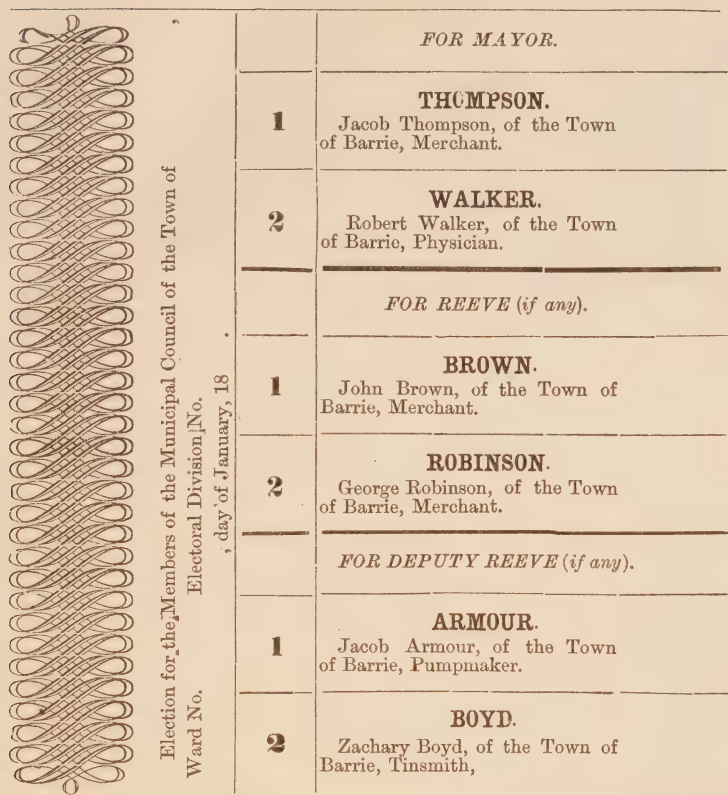 Election for the Members of the Municipal Council of the Town of
Ward No. Electoral Division No.
, day of January, 18 .
FOR MAYOR.
1
THOMPSON.
Jacob Thompson, of the Town
of Barrie, Merchant.
2
WALKER.
Robert Walker, of the Town
of Barrie, Physician.
FOR REEVE (if any).
1
BROWN.
John Brown, of the Town of
Barrie, Merchant.
2
ROBINSON.
George Robinson, of the Town
of Barrie, Merchant.
FOR DEPUTY REEVE (if any).
1
ARMOUR.
Jacob Armour, of the Town
of Barrie, Pumpmaker.
2
BOYD.
Zachary Boyd, of the Town of
Barrie, Tinsmith,